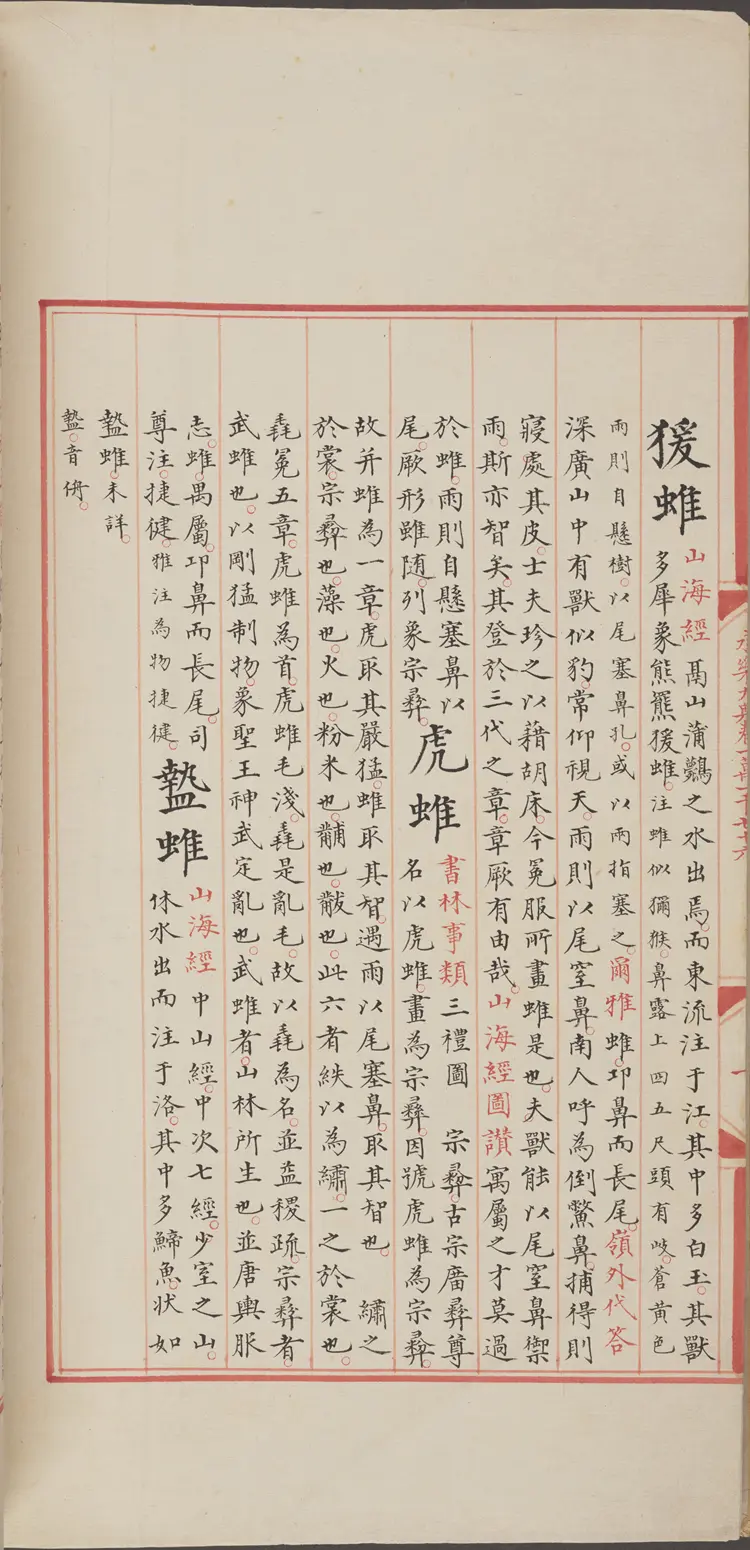 永樂大典卷一萬一千七十六
猨蜼
山海經禼山蒲鸏之水出焉。而東流注于江。其中多白玉。其獸
多犀象熊羆猨蜼。注蜼似獼猴。鼻露上四五尺頭有岐。蒼黃色
雨則自懸樹。以尾塞鼻孔。或以兩指塞之。爾雅蜼。卬鼻而長尾。嶺外代答
深廣山中有獸似豹。常仰視天。雨則以尾窒鼻。南人呼為倒鱉鼻。捕得則
寢處其皮。士夫珍之以藉胡床。今冕服所畫蜼是也。夫獸能以尾窒鼻禦
雨。斯亦智矣。其登於三代之章。章厥有由哉。山海經圖讚寓屬之才莫過
於蜼。雨則自懸塞鼻以
尾。厥形雖随。列象宗彝。
虎蜼
書林事類三禮圖 宗彝古宗廟彝尊
名以虎蜼。畫為宗彝。因號虎蜼為宗彝。
故并蜼為一章。虎取其嚴猛。蜼取其智。遇雨以尾塞鼻。取其智也。 繡之
於裳。宗彝也。藻也。火也。粉米也。黼也。黻也。此六者紩以為繡。一之於裳也。
毳冕五章。虎蜼為首。虎蜼毛淺。毳是亂毛。故以毳為名。並益稷疏。宗彝者。
武蜼也。以剛猛制物。象聖王神武定亂也。武蜼者。山林所生也。並唐輿服
志。蜼。禺屬。卬鼻而長尾。司
尊注。捷健。雅注為物捷健。
盩蜼
山海經中山經。中次七經。少室之山。
休水出而注于洛。其中多䱱魚。狀如
盩蜼。未詳。
盩。音侜。